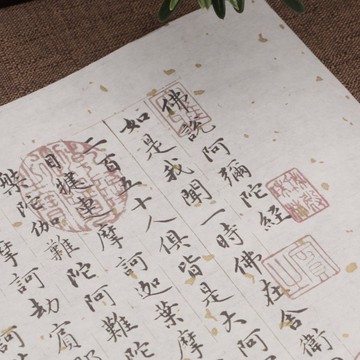 佛說阿彌陀經
如是我聞一時佛在舍衛
二百五十人俱皆是大阿
目犍連摩訶迦葉摩
槃陀伽難陀阿難陀
摩訶劫賓